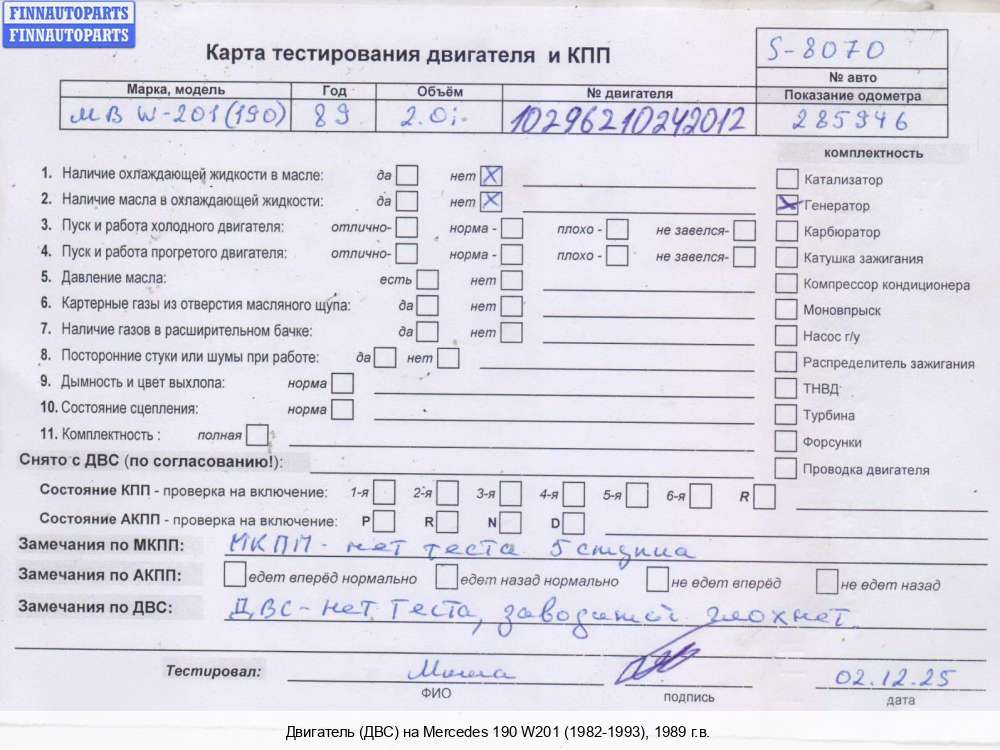 FINNAUTOPARTS
FINNAUTOPARTS
Карта тестирования двигателя и КПП
S-8070
№ авто
Марка, модель Год Объём № двигателя Показание одометра
МВ W-201(190) 89 2.0i- 10296210242012 285946
комплектность
1. Наличие охлаждающей жидкости в масле: да нет X
Катализатор
2. Наличие масла в охлаждающей жидкости: да нет X
Генератор
3. Пуск и работа холодного двигателя: отлично- норма - плохо - не завелся-
Карбюратор
4. Пуск и работа прогретого двигателя: отлично- норма - плохо - не завелся-
Катушка зажигания
5. Давление масла: есть нет
Компрессор кондиционера
6. Картерные газы из отверстия масляного щупа: да нет
Моновпрыск
7. Наличие газов в расширительном бачке: да нет
Насос г/у
8. Посторонние стуки или шумы при работе: да нет
Распределитель зажигания
9. Дымность и цвет выхлопа: норма
ТНВД
10. Состояние сцепления: норма
Турбина
11. Комплектность : полная
Форсунки
Снято с ДВС (по согласованию!):
Проводка двигателя
Состояние КПП - проверка на включение: 1-я 2-я 3-я 4-я 5-я 6-я R
Состояние АКПП - проверка на включение: P R N D
Замечания по МКПП: МКПП - нет теста 5
Замечания по АКПП: едет вперёд нормально едет назад нормально не едет вперёд не едет назад
Замечания по ДВС: ДВС - нет теста, глохнет.
Тестировал: 02.12.25
ФИО подпись дата
Двигатель (ДВС) на Mercedes 190 W201 (1982-1993), 1989 г.в.